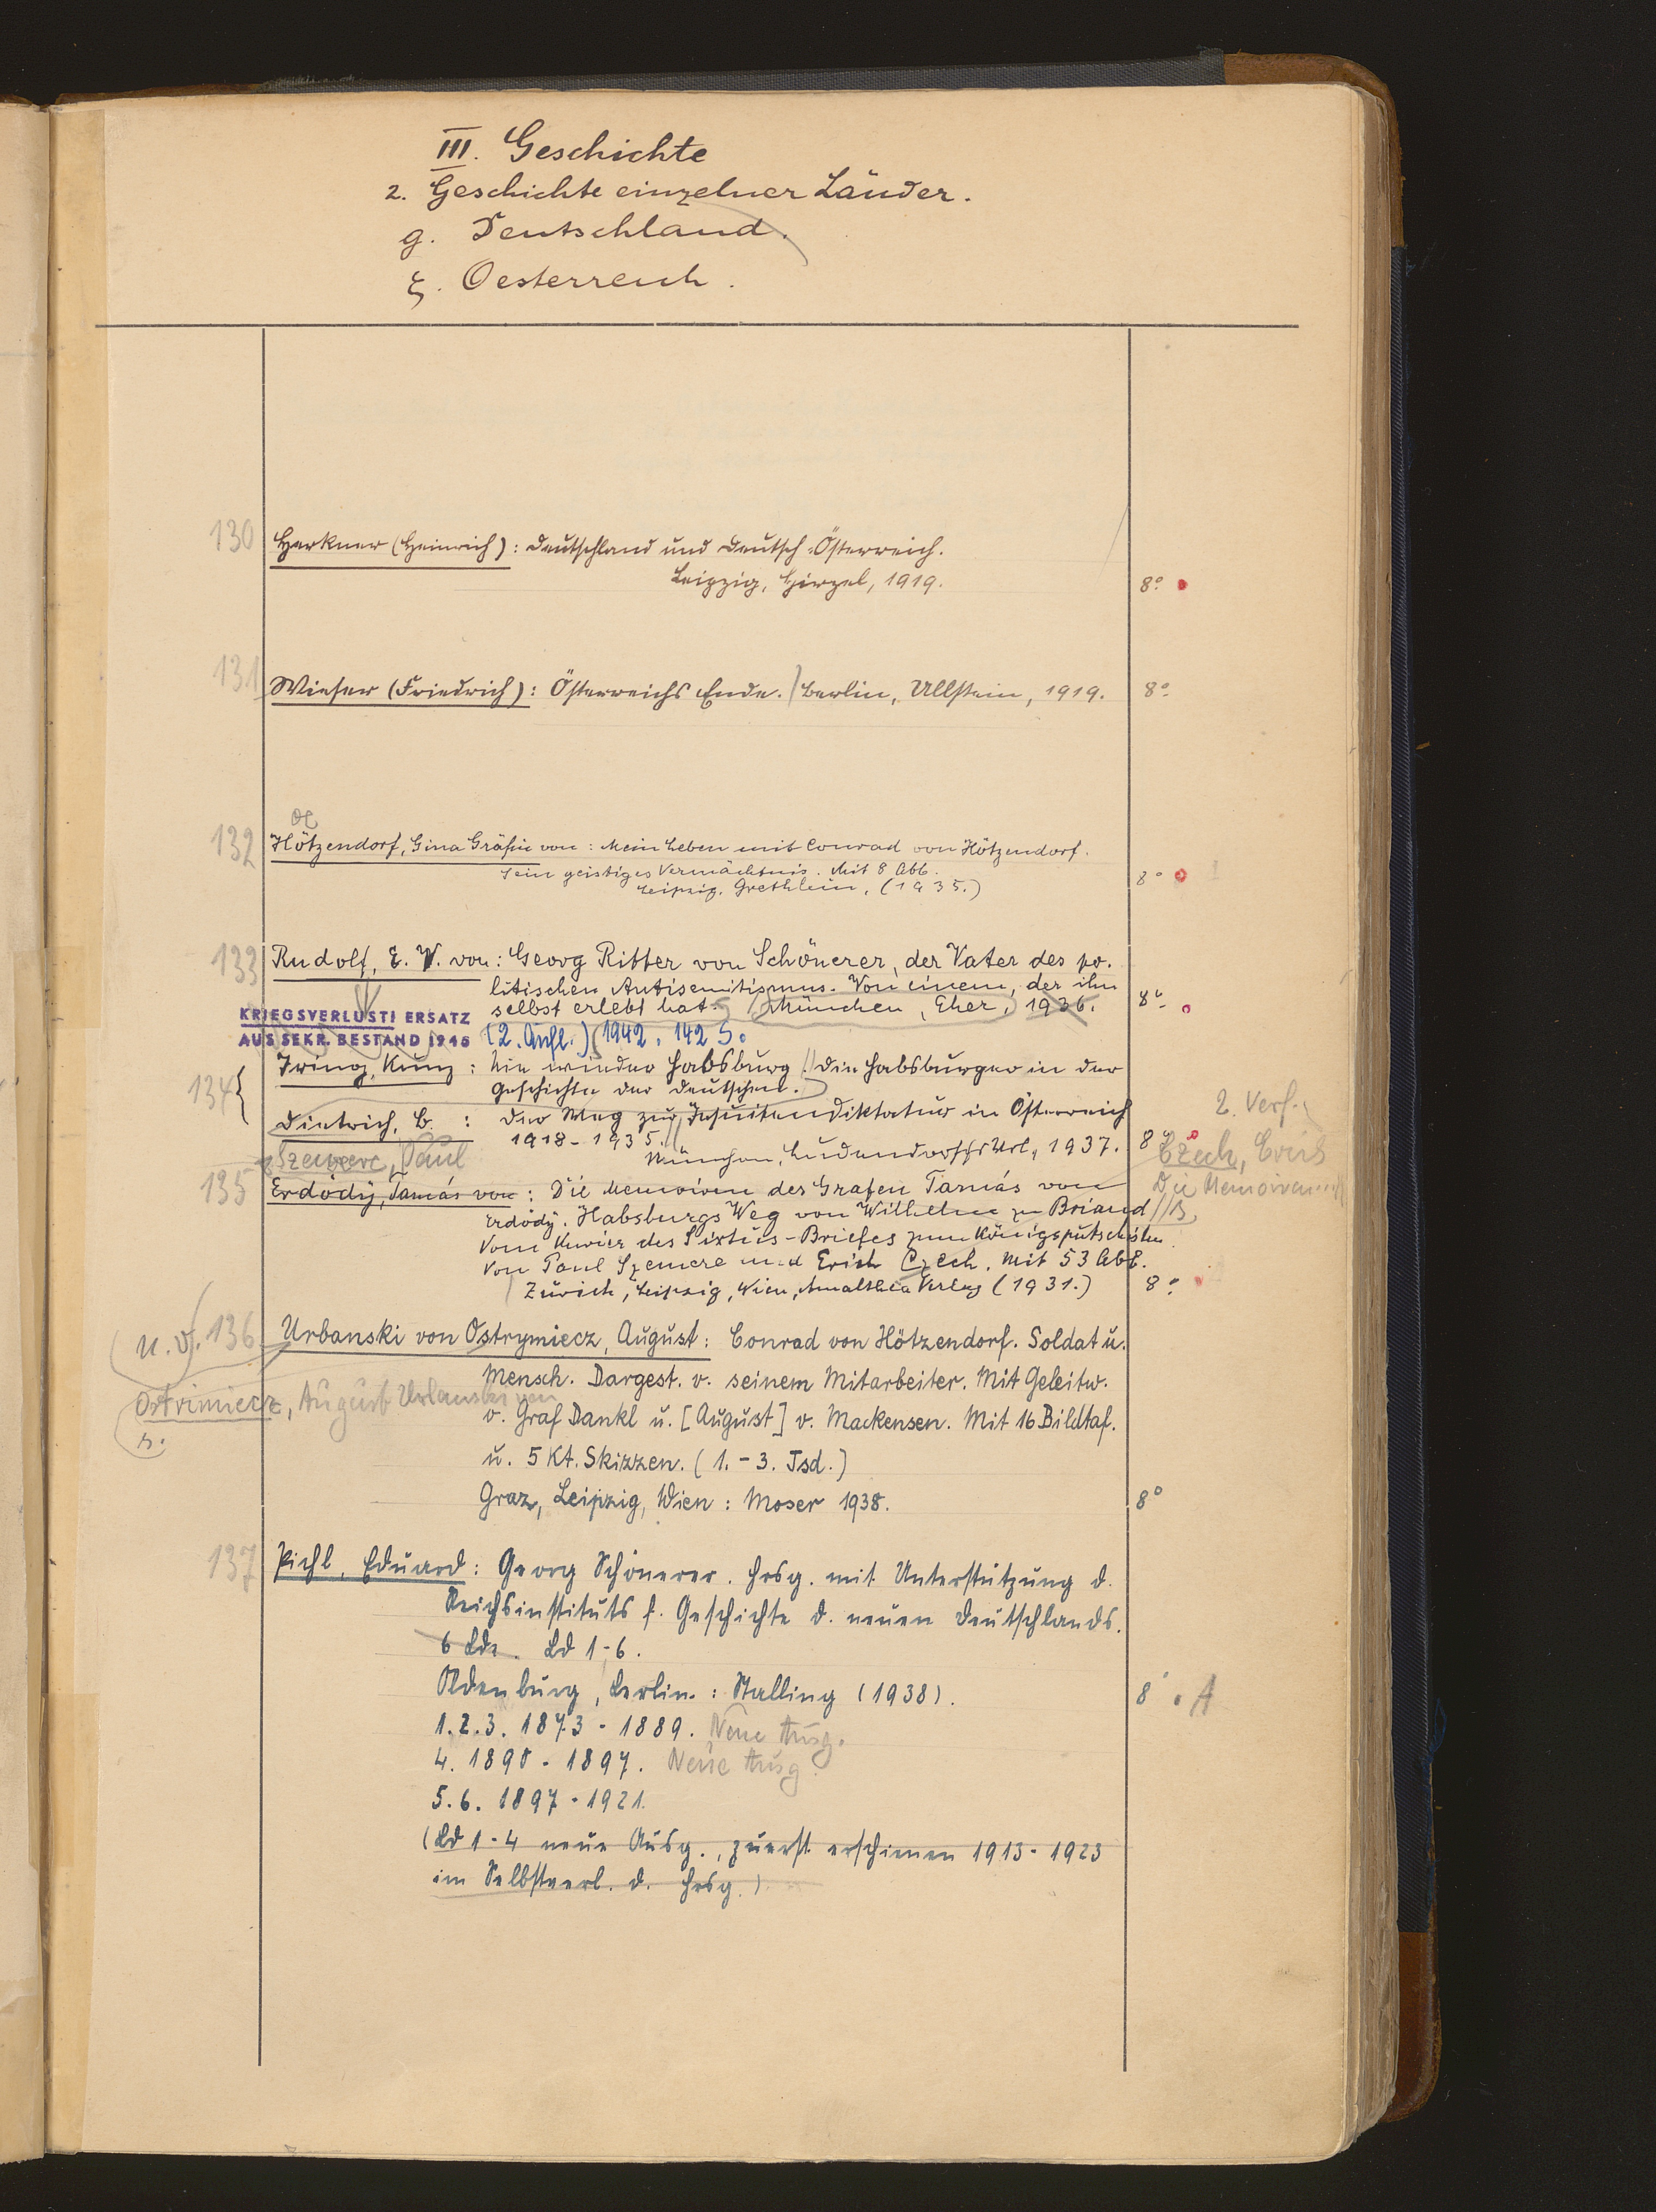 III. Geschichte
2. Geschichte einzelner Länder.
g. Deutschland.
ξ. Oesterreich.
130 Herkner (Heinrich): Deutschland und Deutsch-Österreich.
Leipzig, Hirzel, 1919. 8°
131 Wieser (Friedrich): Österreichs Ende. Berlin, Ullstein, 1919. 8°
132 Hötzendorf, Gina Gräfin von: Mein Leben mit Conrad von Hötzendorf.
Sein geistiges Vermächtnis. Mit 8 Abb.
Leipzig. Grethlein, (1935.) 8°
133 Rudolf, E. V. von: Georg Ritter von Schönerer, der Vater des po-
litischen Antisemitismus. Von einem, der ihn
selbst erlebt hat. München, Eher, 1936. 8°
KRIEGSVERLUST! ERSATZ
AUS SEKR. BESTAND 1946
(2. Aufl.) 1942. 142 S.
134 Iring, Kunz: Nie wieder Habsburg! Die Habsburger in der
Geschichte der Deutschen.
Dietrich, B.: Der Weg zur Jesuitendiktatur in Österreich
1918-1935.
München, Ludendorffs Verl., 1937. 8°
2. Verf.
Czech, Erich
Die Memoiren...
Szemere, Paul
135 Erdödÿ, Tamás von: Die Memoiren des Grafen Tamás von
Erdödÿ. Habsburgs Weg von Wilhelm zu Briand
Vom Kurier des Sixtus-Briefes zum Königsputschisten
Von Paul Szemere und Erich Czech. Mit 53 Abb.
Zürich, Leipzig, Wien, Amalthea Verlag (1931.) 8°
u. V. 136 Urbanski von Ostrymiecz, August: Conrad von Hötzendorf. Soldat u.
Mensch. Dargest. v. seinem Mitarbeiter. Mit Geleitw.
Ostrimiecz, August Urbanski von
v. Graf Dankl u. [August] v. Mackensen. Mit 16 Bildtaf.
u. 5 Kt. Skizzen. (1.-3. Tsd.)
Graz, Leipzig, Wien: Moser 1938. 8°
137 Pichl, Eduard: Georg Schönerer. Hrsg. mit Unterstützung d.
Reichsinstituts f. Geschichte d. neuen Deutschlands.
6 Bde. Bd 1-6.
Oldenburg, Berlin: Stalling (1938). 8° A
1.2.3. 1873-1889. Neue Ausg.
4. 1890-1897. Neue Ausg.
5.6. 1897-1921.
(Bd 1-4 neue Ausg., zuerst erschienen 1913-1923
im Selbstverl. d. Hrsg.)